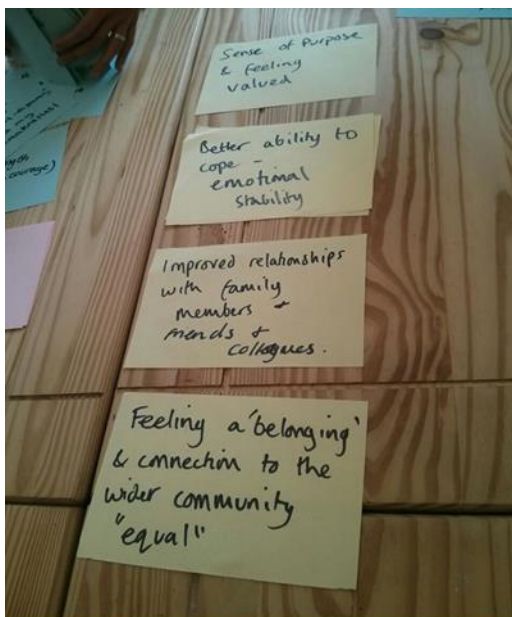 Sense of Purpose
& feeling
valued
Better ability to
cope -
emotional
stability
Improved relationships
with family
members &
friends &
colleagues.
Feeling a 'belonging'
& connection to the
wider community
"equal"
courage)